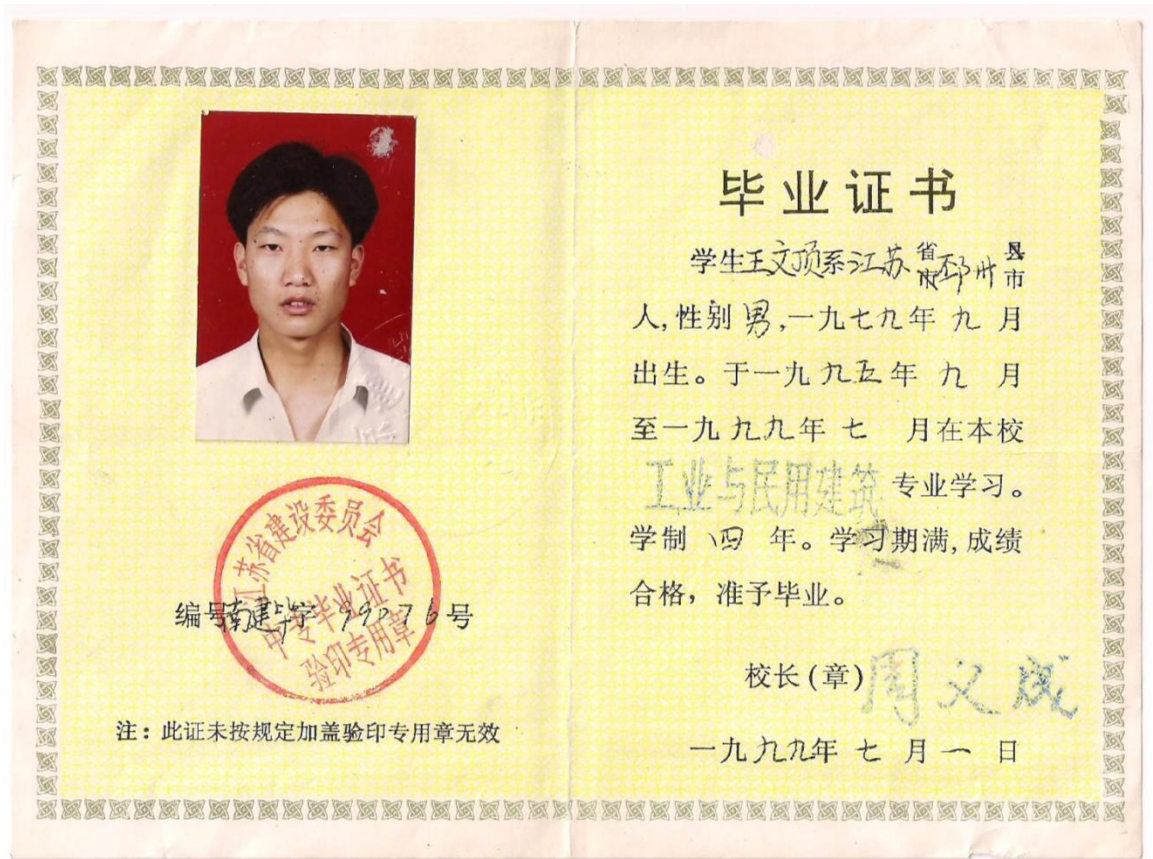 江苏省建设委员会
中专毕业证书
验印专用章
编号南建毕字 号
注：此证未按规定加盖验印专用章无效
毕业证书
学生王文顶系江苏省邳州县市
人,性别男,一九七九年九月
出生。于一九九五年九月
至一九九九年七月在本校
工业与民用建筑专业学习。
学制四年。学习期满,成绩
合格，准予毕业。
校长(章)周 成
一九九九年七月一日